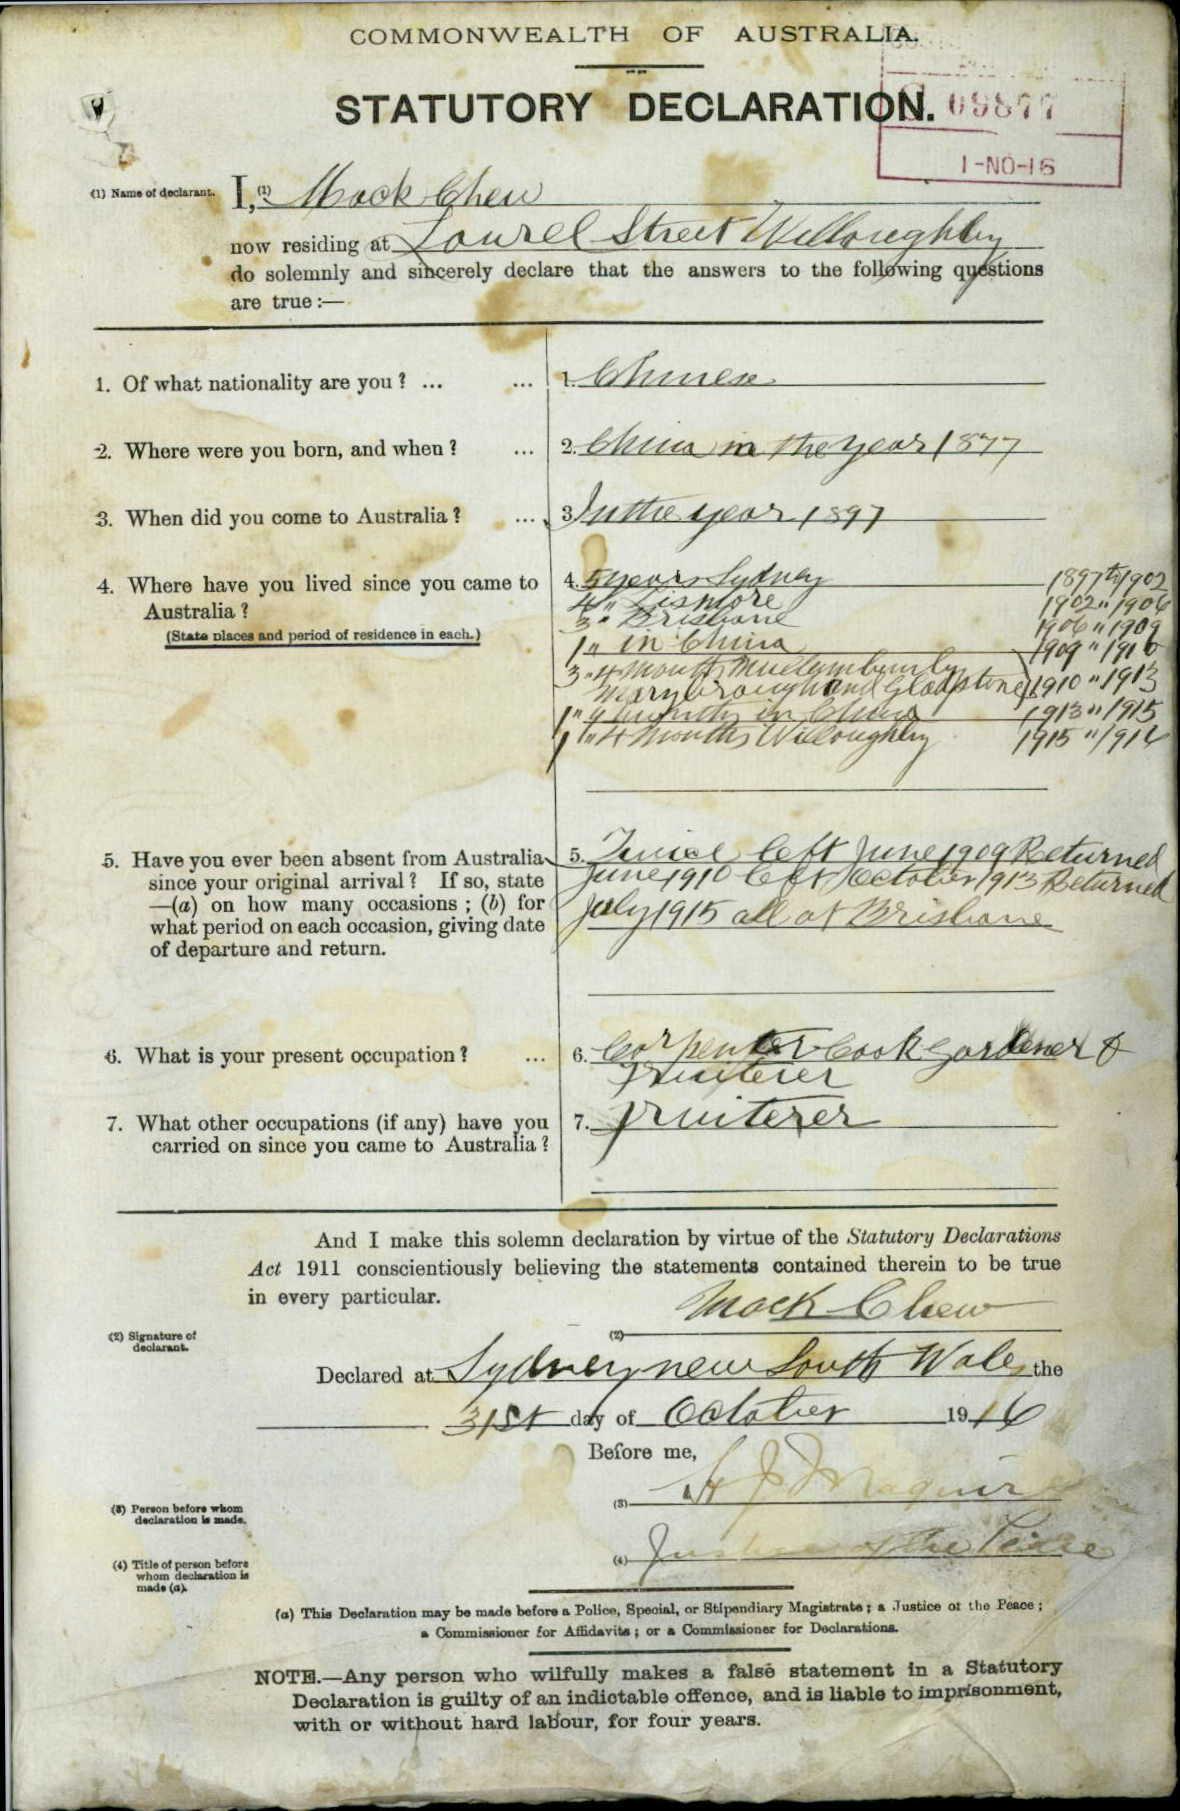 COMMONWEALTH OF AUSTRALIA.
STATUTORY DECLARATION.
09877
1-NO-16
(1) Name of declarant.
I, (1) Mack Chew
now residing at Laurel Street Willoughby
do solemnly and sincerely declare that the answers to the following questions
are true:—
1. Of what nationality are you? ... ... 1. Chinese
2. Where were you born, and when? ... 2. China in the year 1877
3. When did you come to Australia? ... 3 In the year 1897
4. Where have you lived since you came to
Australia?
(State places and period of residence in each.)
4. 5 years Sydney 1897 to 1902
4 " Lismore 1902 " 1906
3 " Brisbane 1906 " 1909
1 " in China 1909 " 1910
3 " 4 months Mullumbimby
Maryborough and Gladstone 1910 " 1913
1 " 9 months in China 1913 " 1915
1 " 4 months Willoughby 1915 " 1916
5. Have you ever been absent from Australia
since your original arrival? If so, state
—(a) on how many occasions; (b) for
what period on each occasion, giving date
of departure and return.
5. Twice left June 1909 Returned
June 1910 left October 1913 Returned
July 1915 all at Brisbane
6. What is your present occupation? ... 6. Carpenter Cook Gardener &
Fruiterer
7. What other occupations (if any) have you
carried on since you came to Australia?
7. Fruiterer
And I make this solemn declaration by virtue of the Statutory Declarations
Act 1911 conscientiously believing the statements contained therein to be true
in every particular.
(2) Signature of
declarant.
(2) Mack Chew
Declared at Sydney New South Wales the
31st day of October 1916
Before me,
(3) Person before whom
declaration is made.
(3) H J Maguire
(4) Title of person before
whom declaration is
made (a).
(4) Justice of the Peace
(a) This Declaration may be made before a Police, Special, or Stipendiary Magistrate; a Justice of the Peace;
a Commissioner for Affidavits; or a Commissioner for Declarations.
NOTE.—Any person who wilfully makes a false statement in a Statutory
Declaration is guilty of an indictable offence, and is liable to imprisonment,
with or without hard labour, for four years.